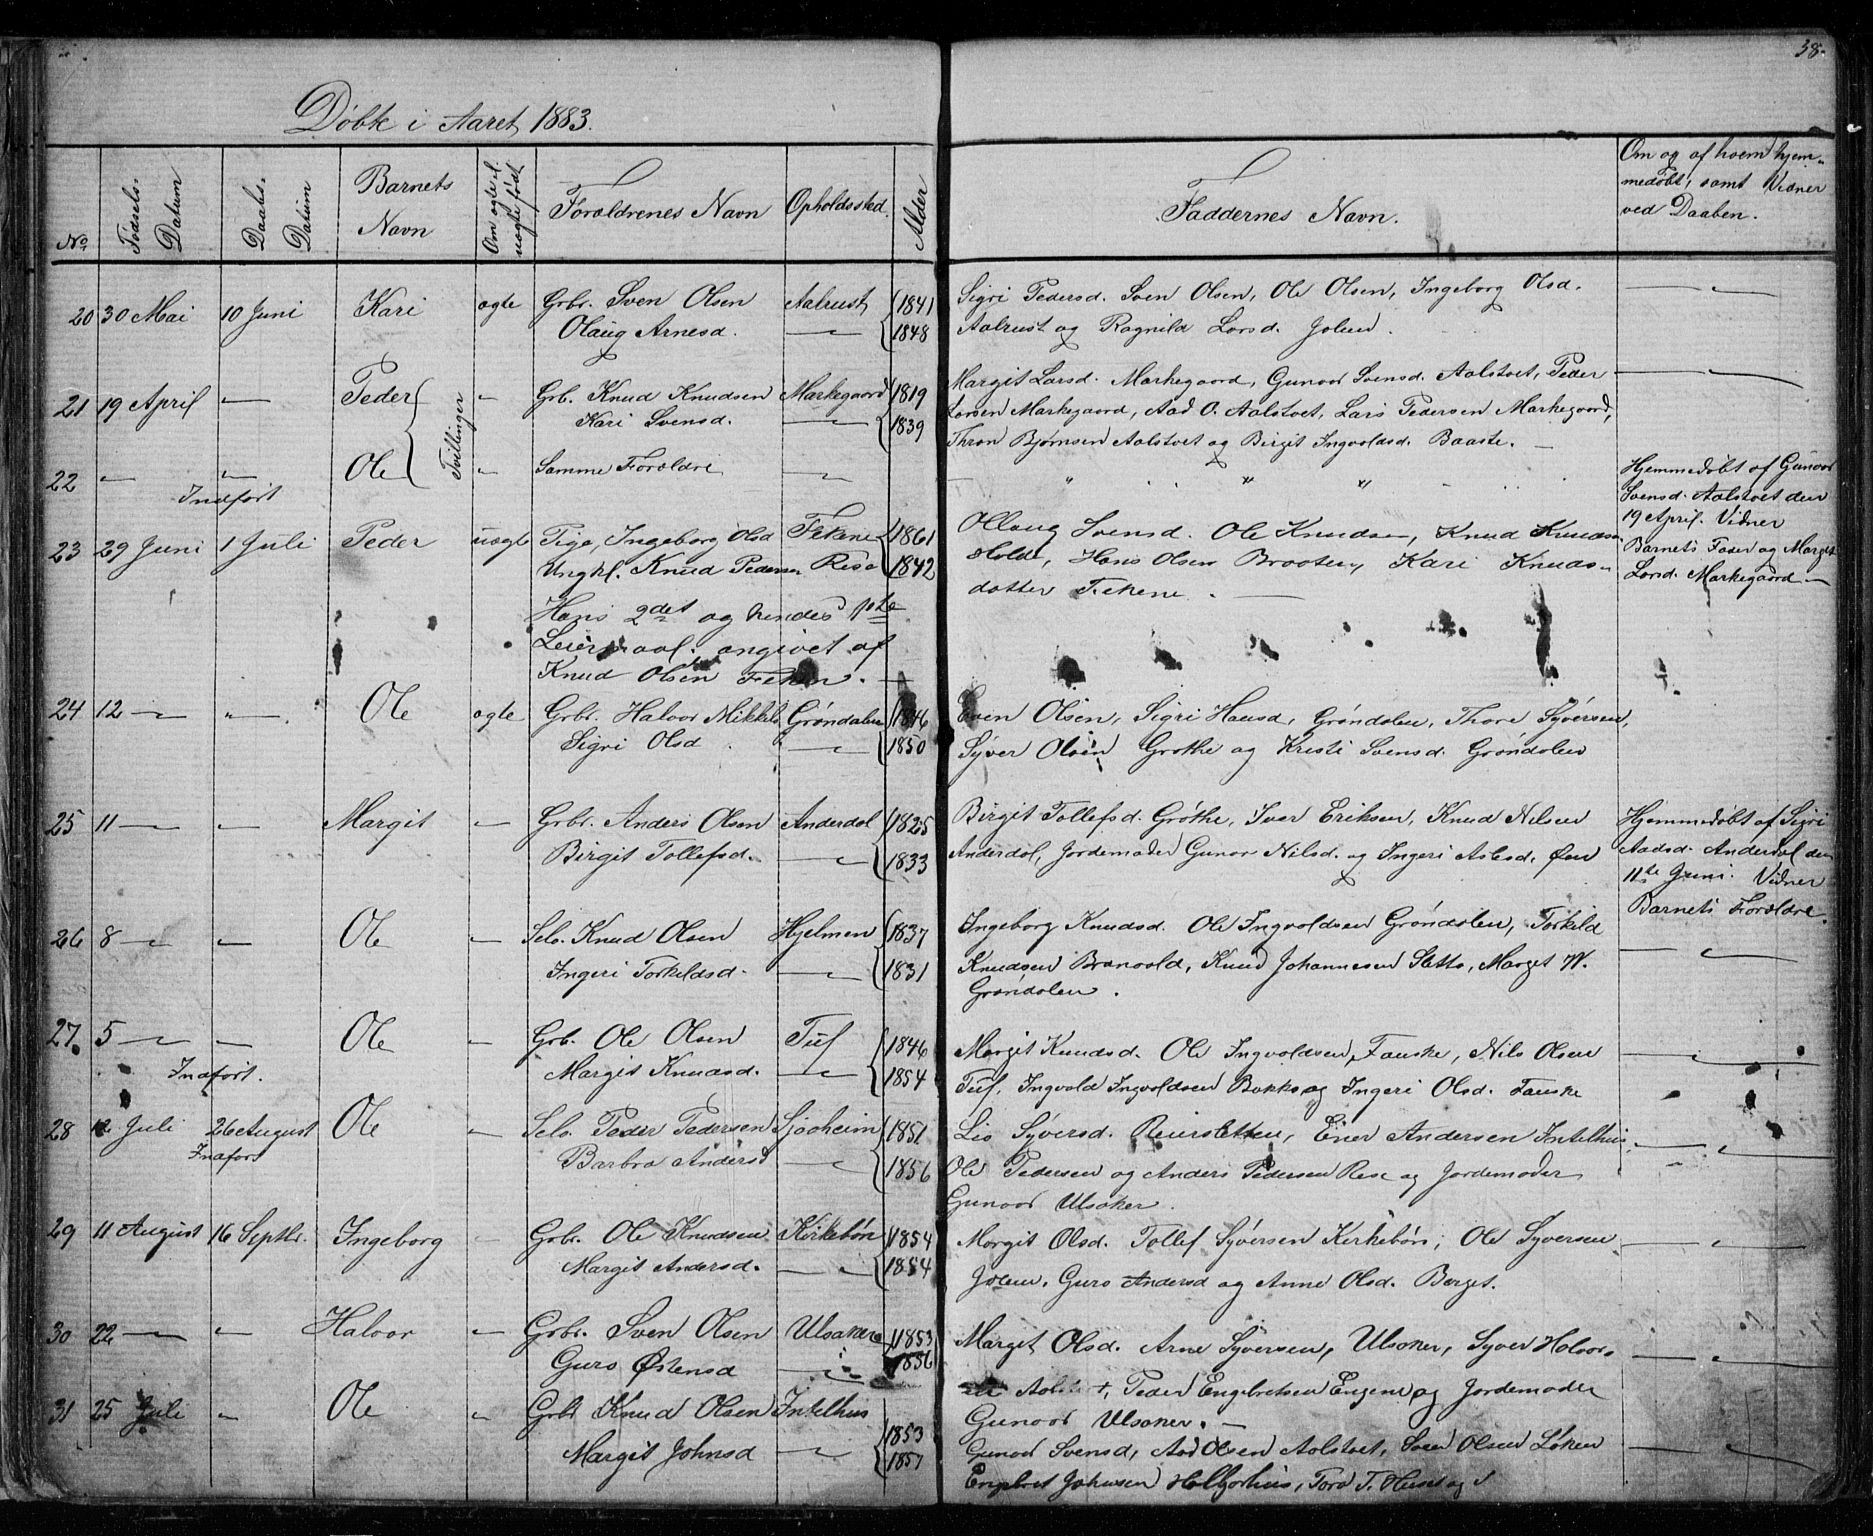 38.
Døbte i Aaret 1883.
No
Fødsels-Datum
Daabs-Datum
Barnets Navn
Om ægte el. uægte født
Forældrenes Navn
Opholdssted.
Alder
Faddernes Navn.
Om og af hvem hjem-
medøbt, samt Vidner
ved Daaben.
20 30 Mai 10 Juni Kari ægte Grbr. Sven Olsen Aalrust 1841 Sigri Pedersd. Sven Olsen, Ole Olsen, Ingeborg Olsd.
Olaug Arnesd. — 1848 Aalrust og Ragnild Larsd. Jolen.
21 19 April — Peder Tvillinger — Grb. Knud Knudsen Markegaard 1819 Margit Larsd. Markegaard, Gunvor Svensd. Aalstvet, Peder
Kari Svensd. — 1839 Larsen Markegaard, Aad O. Aalstvet, Lars Pedersen Markegaard,
Thron Bjørnsen Aalstvet og Birgit Ingvoldsd. Baaste. —
22 — — Ole — Samme Forældre — " " " Hjemmedøbt af Gunvor
Indført Svensd. Aalstvet den
19 April. Vidner
Barnets Fader og Marget
Larsd. Markegaard —
23 29 Juni 1 Juli Peder uægte Pige, Ingeborg Olsd Fekene 1861 Ollaug Svensd. Ole Knudsen, Knud Knudsen
Ungkl. Knud Pedersen Rese 1842 Holde, Hans Olsen Braaten, Kari Knuds-
datter Fekene. —
Hans 2det og hendes 1ste
Leiermaal. angivet af
Knud Olsen Feken. —
24 12 — — Ole ægte Grbr. Halvor Mikkels Grøndalen 1846 Even Olsen, Sigri Hansd, Grøndalen, Thore Syversen,
Sigri Olsd — 1850 Syver Olsen Grøthe og Kristi Svensd. Grøndalen
25 11 — — Margit — Grbr. Anders Olsen Anderdal 1825 Birgit Tollefsd. Grøthe, Iver Eriksen, Knud Nilsen Hjemmedøbt af Sigri
Birgit Tollefsd. — 1833 Anderdal, Jordemoder Gunor Nilsd. og Ingeri Aslesd. Øen Aadsd. Anderdal den
11te Juni. Vidner
Barnets Forældre.
26 8 — — Ole — Selv. Knud Olsen Hjelmen 1837 Ingeborg Knudsd. Ole Ingvoldsen Grøndalen, Torkild
Ingeri Torkildsd. — 1831 Knudsen Branvold, Knud Johannesen Sletto, Marget N.
Grøndalen.
27. 5 — — Ole — Grb. Ole Olsen Tuf 1846 Margit Knudsd. Ole Ingvoldsen Fauske, Nils Olsen
Indført. Margit Knudsd. — 1854 Tuf, Ingvold Ingvoldsen Bakke og Ingeri Olsd. Fauske
28 12 Juli 26 August Ole — Selv Peder Pedersen Sjoheim 1851 Liv Syversd. Reiersletten, Einer Andersen Intelhus,
Indført Barbro Andersd — 1856 Ole Pedersen og Anders Pedersen Rese og Jordemoder
Gunvor Ulsaker.
29 11 August 16 Septbr. Ingeborg — Grbr. Ole Knudsen Kirkebøn 1854 Margit Olsd. Tollef Syversen Kirkebøn, Ole Syversen
Margit Andersd. — 1854 Jolen, Guro Andersd og Anne Olsd. Berget.
30 22 — — Halvor — Grbr. Sven Olsen Ulsaker 1853 Marget Olsd. Arne Syversen, Ulsaker, Syver Halvor-
Guro Østensd — 1856 Peder Engebretsen Engene og Jordemoder
Gunvor Ulsaker. —
31 25 Juli — Ole — Grbr Knud Olsen Intelhus 1853 Gunvor Svensd, Aad Olsen Aalstvet, Sven Olsen Løken
Margit Johnsd — 1857 Engebret Johnsen Helgorhus, Tord T. Huso og